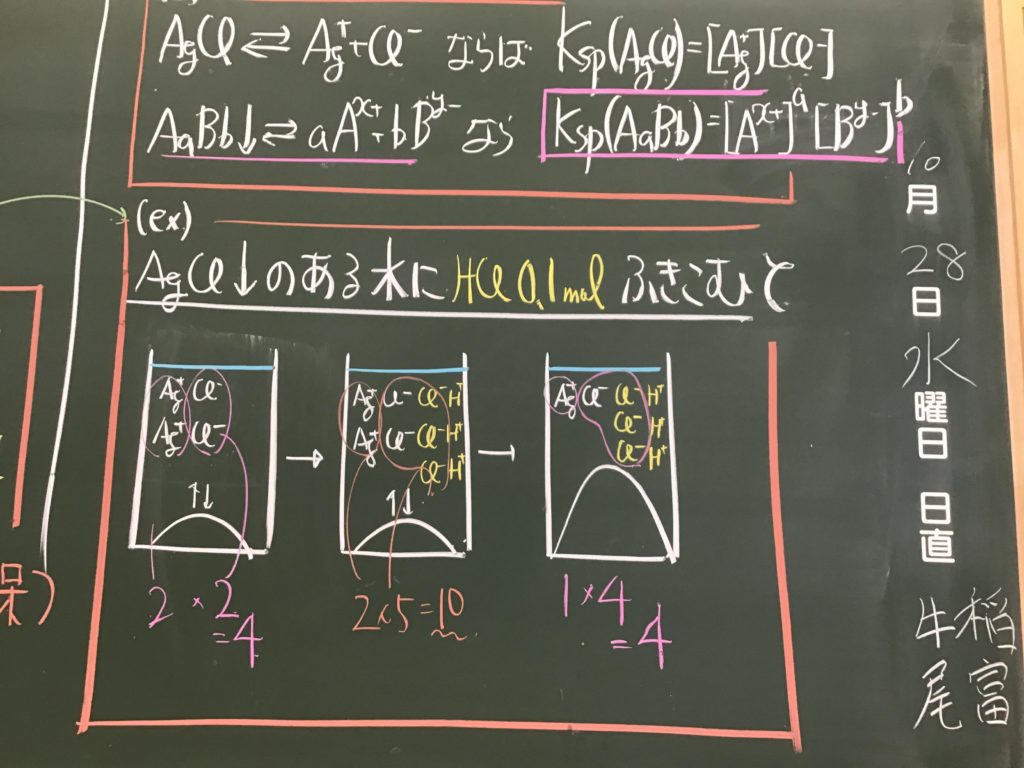 AgCl ⇄ Ag⁺+Cl⁻ ならば Ksp(AgCl)=[Ag⁺][Cl⁻]
AaBb↓⇄ aAˣ⁺+bBʸ⁻ なら Ksp(AaBb)=[Aˣ⁺]ᵃ[Bʸ⁻]ᵇ
(ex)
AgCl↓のある水にHCl 0.1mol ふきこむと
Ag⁺ Cl⁻
Ag⁺ Cl⁻
↑↓
2×2
=4
→
Ag⁺ Cl⁻ Cl⁻ H⁺
Ag⁺ Cl⁻ Cl⁻ H⁺
Cl⁻ H⁺
↑↓
2×5=10
→
Ag⁺ Cl⁻ Cl⁻ H⁺
Cl⁻ H⁺
Cl⁻ H⁺
1×4
=4
10
月
28
日
水
曜
日
日
直
稲富
牛尾